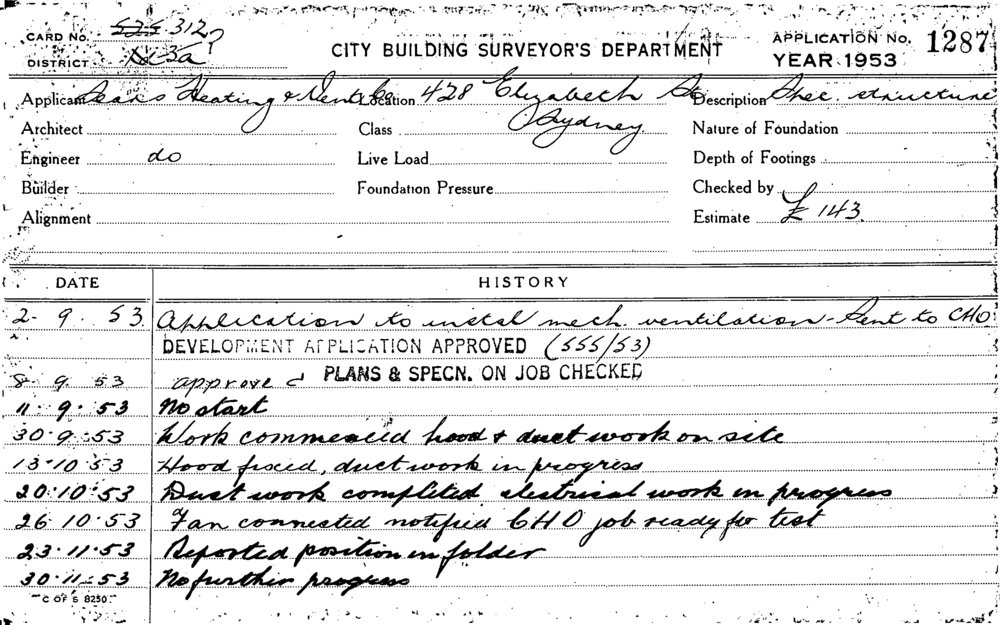 CARD No. 525 312?
DISTRICT N 3a
CITY BUILDING SURVEYOR'S DEPARTMENT
APPLICATION No. 1287
YEAR 1953
Applicant Sears Heating & Vent Co Location 428 Elizabeth St Description Spec. structure
Architect Class Sydney Nature of Foundation
Engineer do Live Load Depth of Footings
Builder Foundation Pressure Checked by
Alignment Estimate £ 143
DATE HISTORY
2. 9. 53 Application to instal mech. ventilation - Sent to CHO
DEVELOPMENT APPLICATION APPROVED (555/53)
8. 9. 53 approved PLANS & SPECN. ON JOB CHECKED
11. 9. 53 No start
30. 9. 53 Work commenced hood & duct work on site
13. 10. 53 Hood fixed, duct work in progress
20. 10. 53 Duct work completed electrical work in progress
26. 10. 53 Fan connected notified CHO job ready for test
23. 11. 53 Reported position in folder
30. 11. 53 No further progress
C OF S 8250